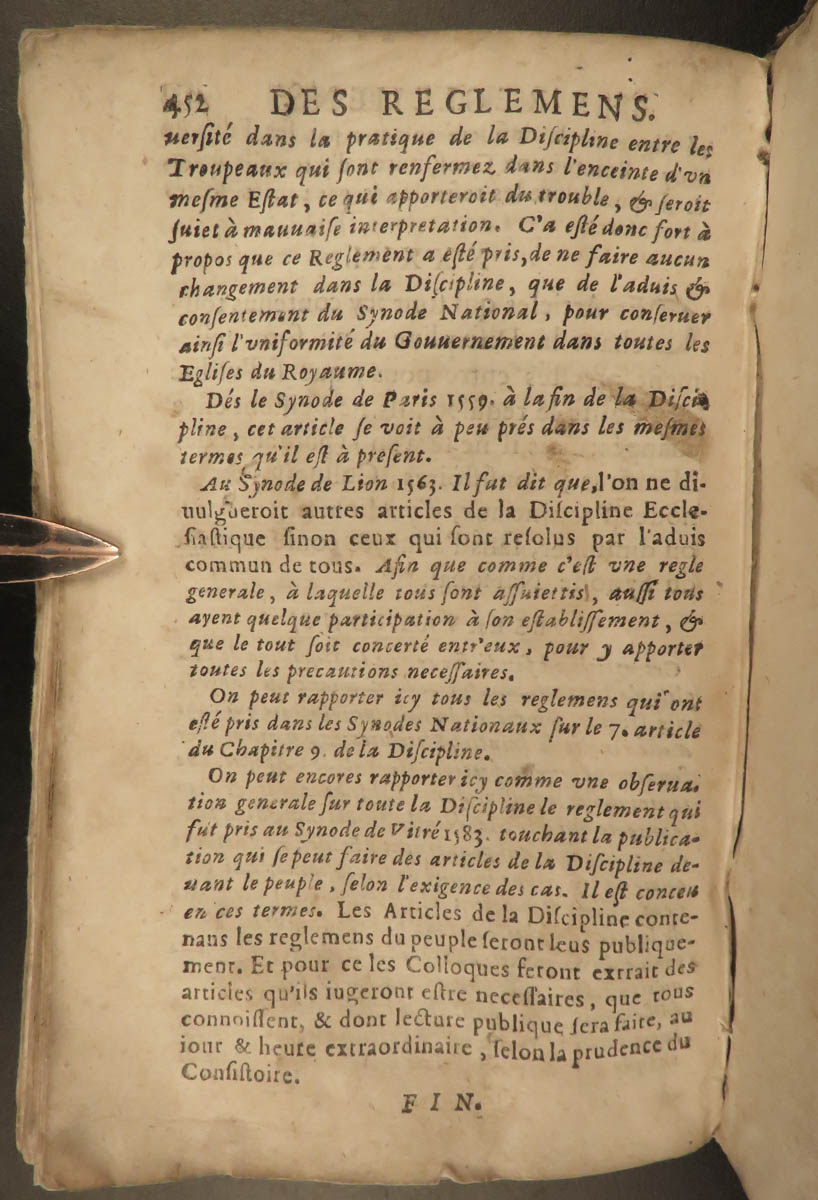 452 DES REGLEMENS.
uerſité dans la pratique de la Diſcipline entre les
Troupeaux qui ſont renfermez dans l'enceinte d'vn
meſme Eſtat, ce qui apporteroit du trouble, & ſeroit
ſuiet à mauuaiſe interpretation. C'a eſté donc fort à
propos que ce Reglement a eſté pris, de ne faire aucun
changement dans la Diſcipline, que de l'aduis &
conſentement du Synode National, pour conſeruer
ainſi l'vniformité du Gouuernement dans toutes les
Egliſes du Royaume.
Dés le Synode de Paris 1559. à la fin de la Diſci-
pline, cet article ſe voit à peu prés dans les meſmes
termes qu'il eſt à preſent.
Au Synode de Lion 1563. Il fut dit que, l'on ne di-
uulgueroit autres articles de la Diſcipline Eccle-
ſiaſtique ſinon ceux qui ſont reſolus par l'aduis
commun de tous. Afin que comme c'eſt vne regle
generale, à laquelle tous ſont aſſuiettis, auſſi tous
ayent quelque participation à ſon eſtabliſſement, &
que le tout ſoit concerté entr'eux, pour y apporter
toutes les precautions neceſſaires.
On peut rapporter icy tous les reglemens qui ont
eſté pris dans les Synodes Nationaux ſur le 7. article
du Chapitre 9. de la Diſcipline.
On peut encores rapporter icy comme vne obſerua-
tion generale ſur toute la Diſcipline le reglement qui
fut pris au Synode de Vitré 1583. touchant la publica-
tion qui ſe peut faire des articles de la Diſcipline de-
uant le peuple, ſelon l'exigence des cas. Il eſt conceu
en ces termes. Les Articles de la Diſcipline conte-
nans les reglemens du peuple ſeront leus publique-
ment. Et pour ce les Colloques feront extrait des
articles qu'ils iugeront eſtre neceſſaires, que tous
connoiſſent, & dont lecture publique ſera faite, au
iour & heure extraordinaire, ſelon la prudence du
Conſiſtoire.
FIN.